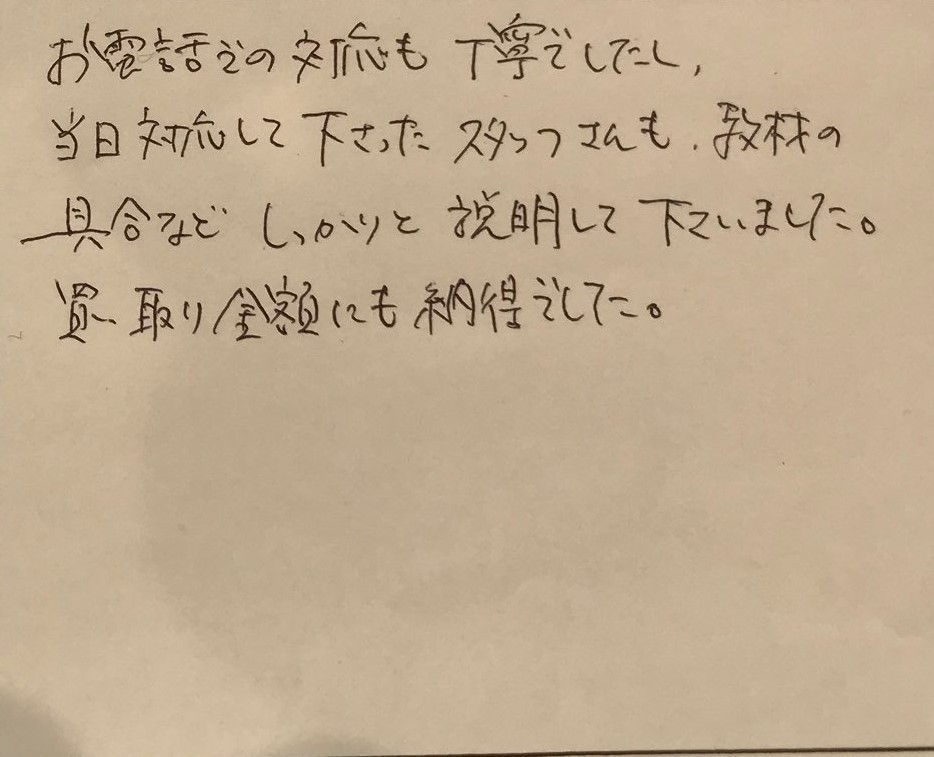 お電話での対応も丁寧でしたし、
当日対応して下さった スタッフさんも、教材の
具合など しっかりと 説明して 下さいました。
買い取り金額にも 納得でした。